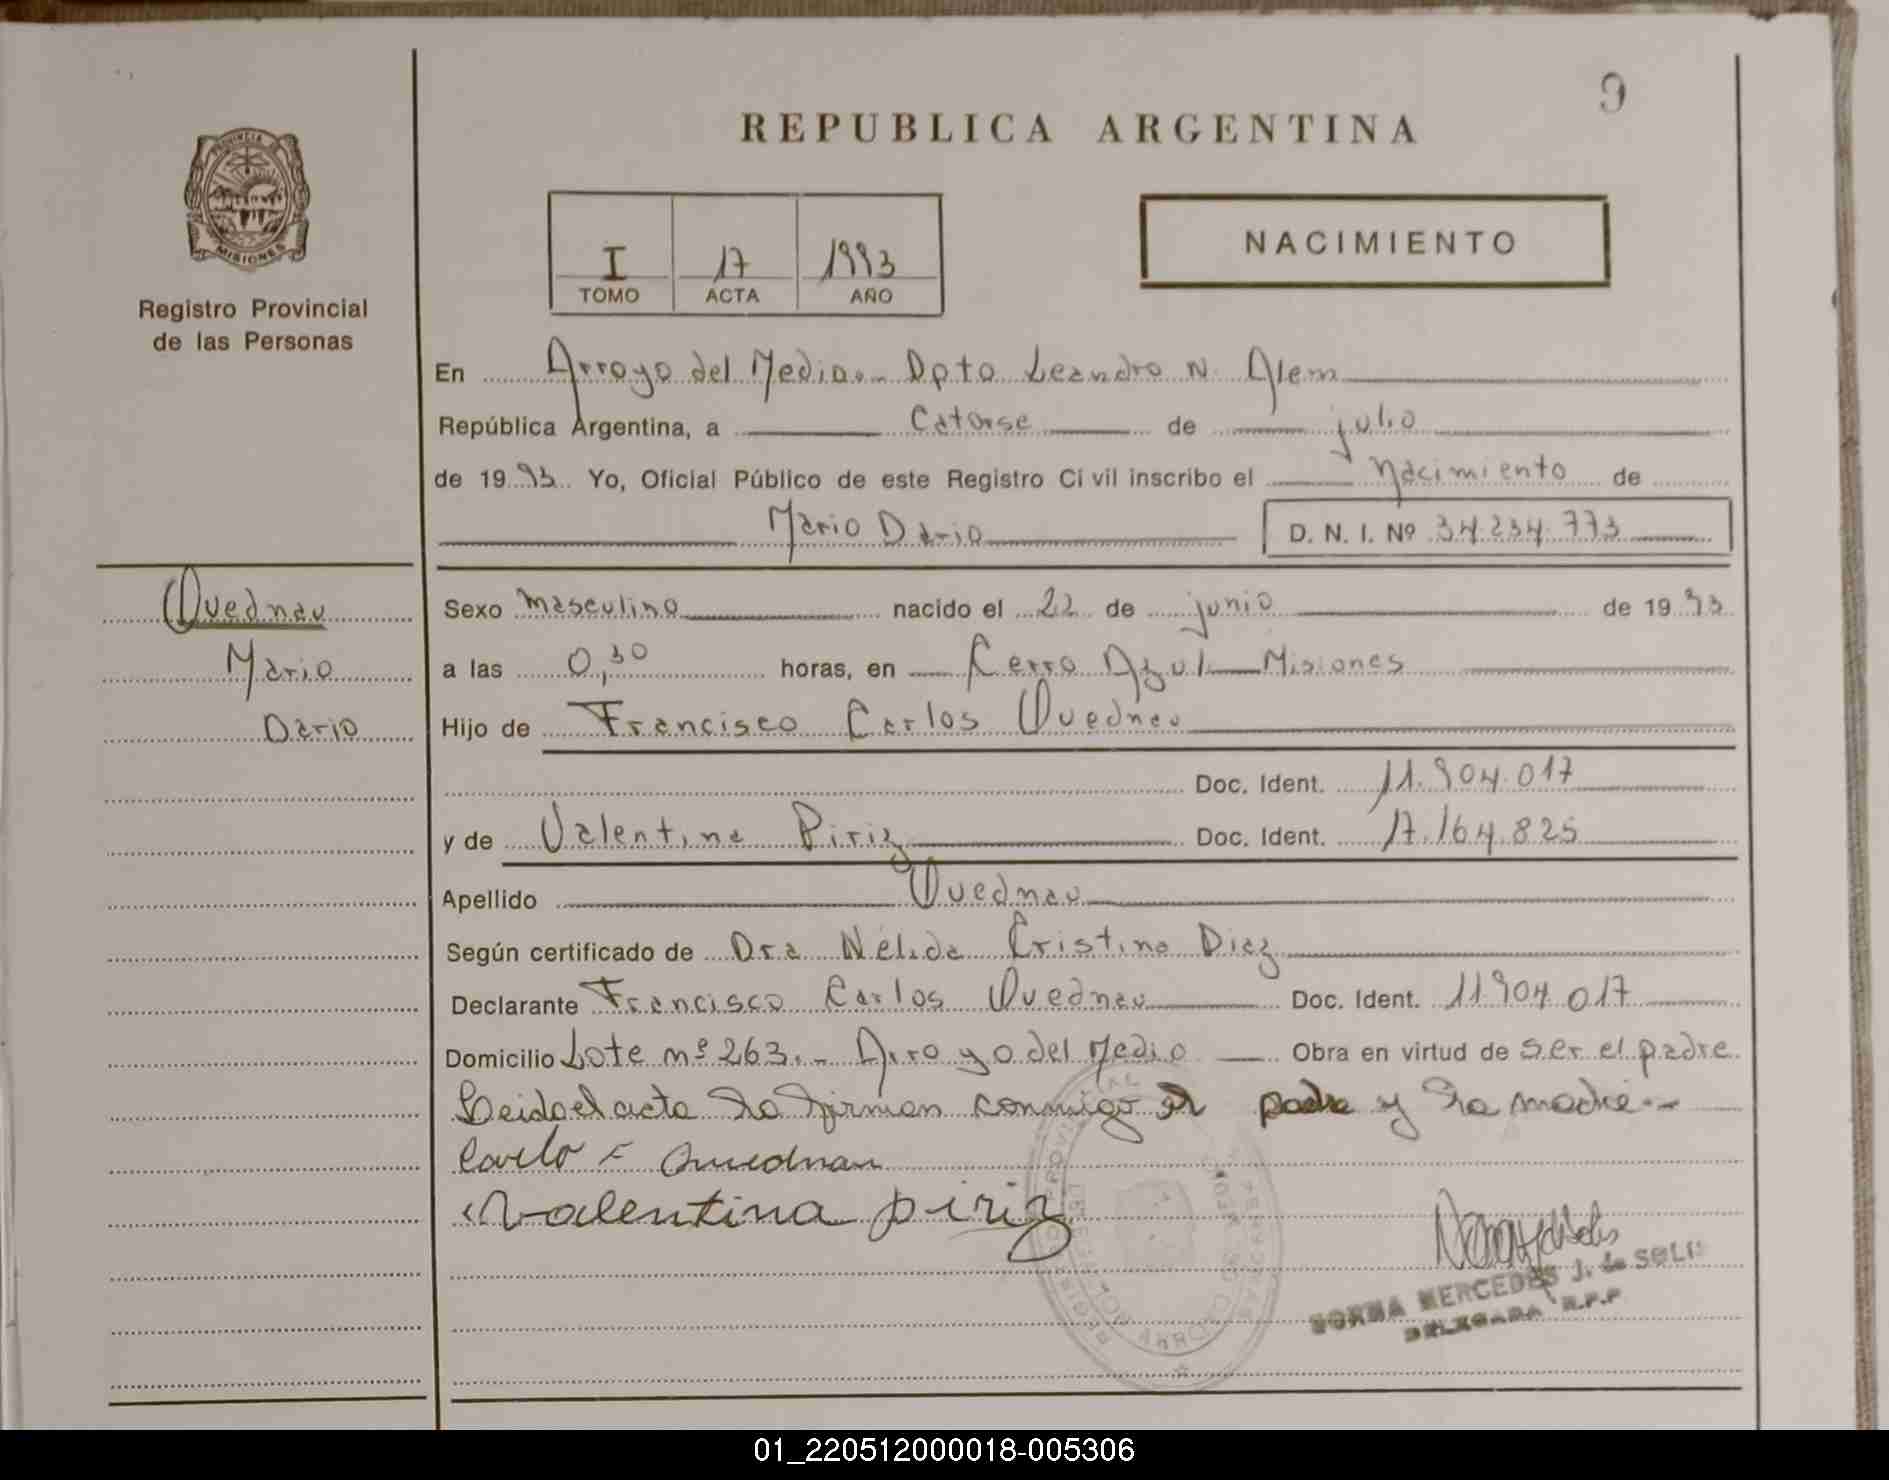 9
REPUBLICA ARGENTINA
PROVINCIA DE
MISIONES
Registro Provincial
de las Personas
I 17 1993
TOMO ACTA AÑO
NACIMIENTO
En Arroyo del Medio.- Dpto Leandro N. Alem
República Argentina, a Catorse de julio
de 1993 Yo, Oficial Público de este Registro Civil inscribo el Nacimiento de
Mario Dario D. N. I. Nº 34.234.773
Quednau
Mario
Dario
Sexo masculino nacido el 22 de junio de 1993
a las 0,30 horas, en Cerro Azul Misiones
Hijo de Francisco Carlos Quednau
Doc. Ident. 11.904.017
y de Valentina Piriz Doc. Ident. 17.164.825
Apellido Quednau
Según certificado de Dra Nélida Cristina Diez
Declarante Francisco Carlos Quednau Doc. Ident. 11904.017
Domicilio Lote nº 263.- Arroyo del Medio Obra en virtud de ser el padre
Leida el acta la firman conmigo el padre y la madre.-
Valentina piriz
NORMA MERCEDES J. de SOLIS
DELEGADA R.P.P
01_220512000018-005306